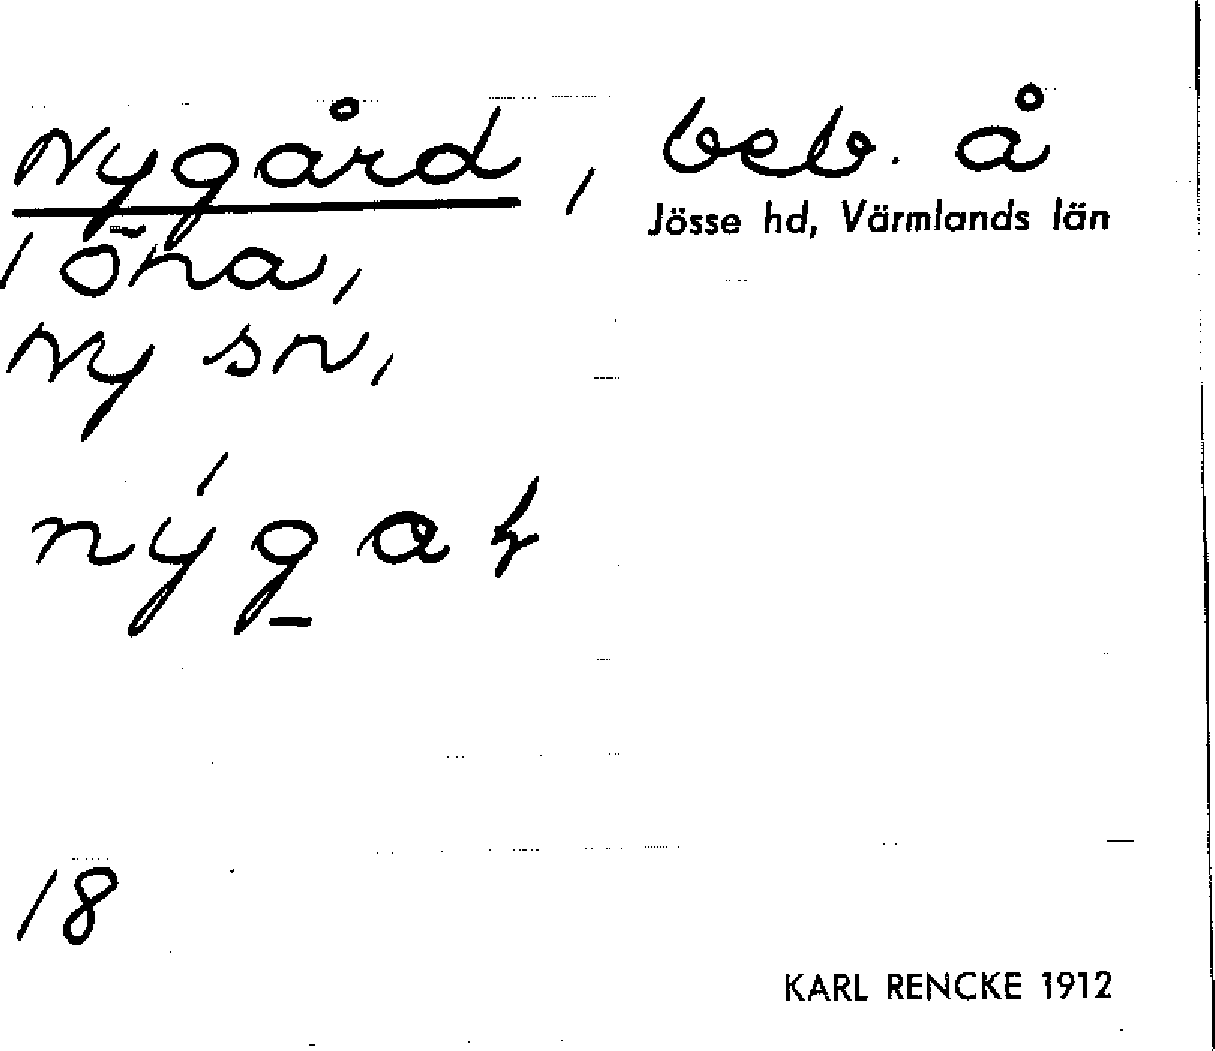 Nygård, beb. å
Jösse hd, Värmlands län
1 öna,
Ny sn,
18
KARL RENCKE 1912